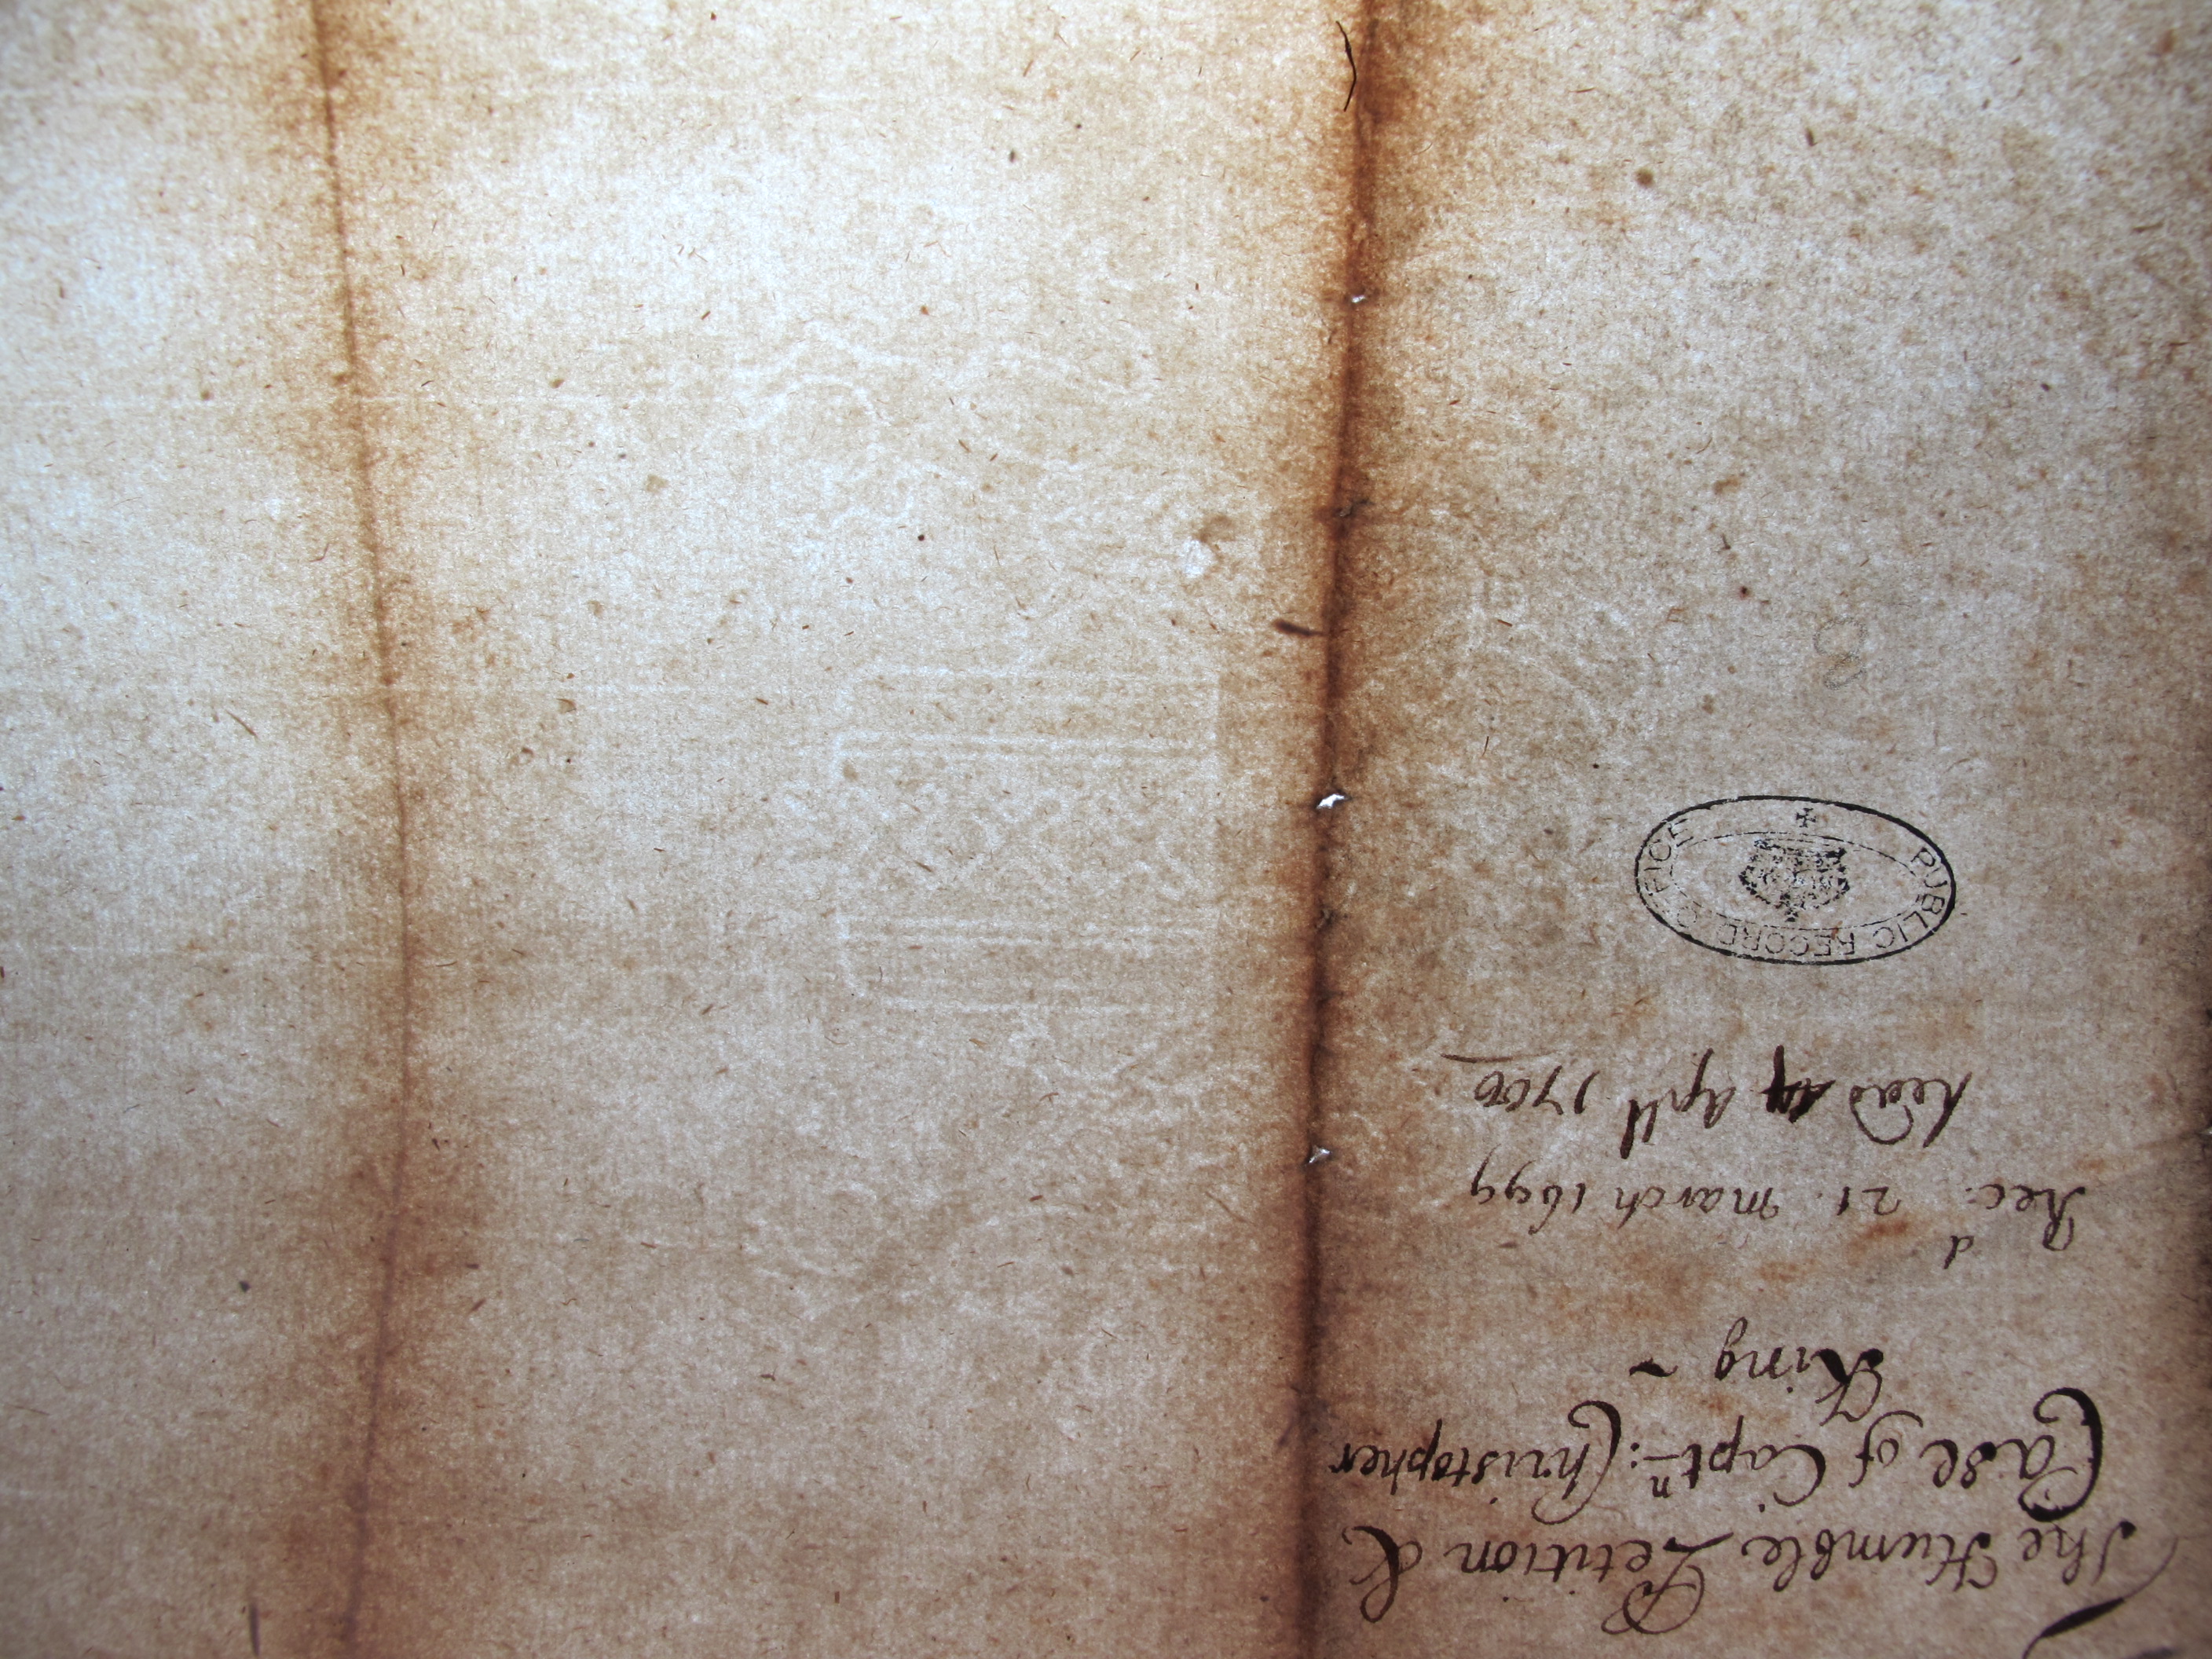 The Humble Petition &
Case of Captn: Christopher
King ~
Recd. 21. march 1699
Read April 1700
PUBLIC RECORD OFFICE